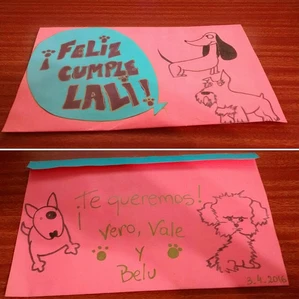 ¡FELIZ
CUMPLE
LALI!!
¡Te queremos!
Vero, Vale
y
Belu
3.4.2016